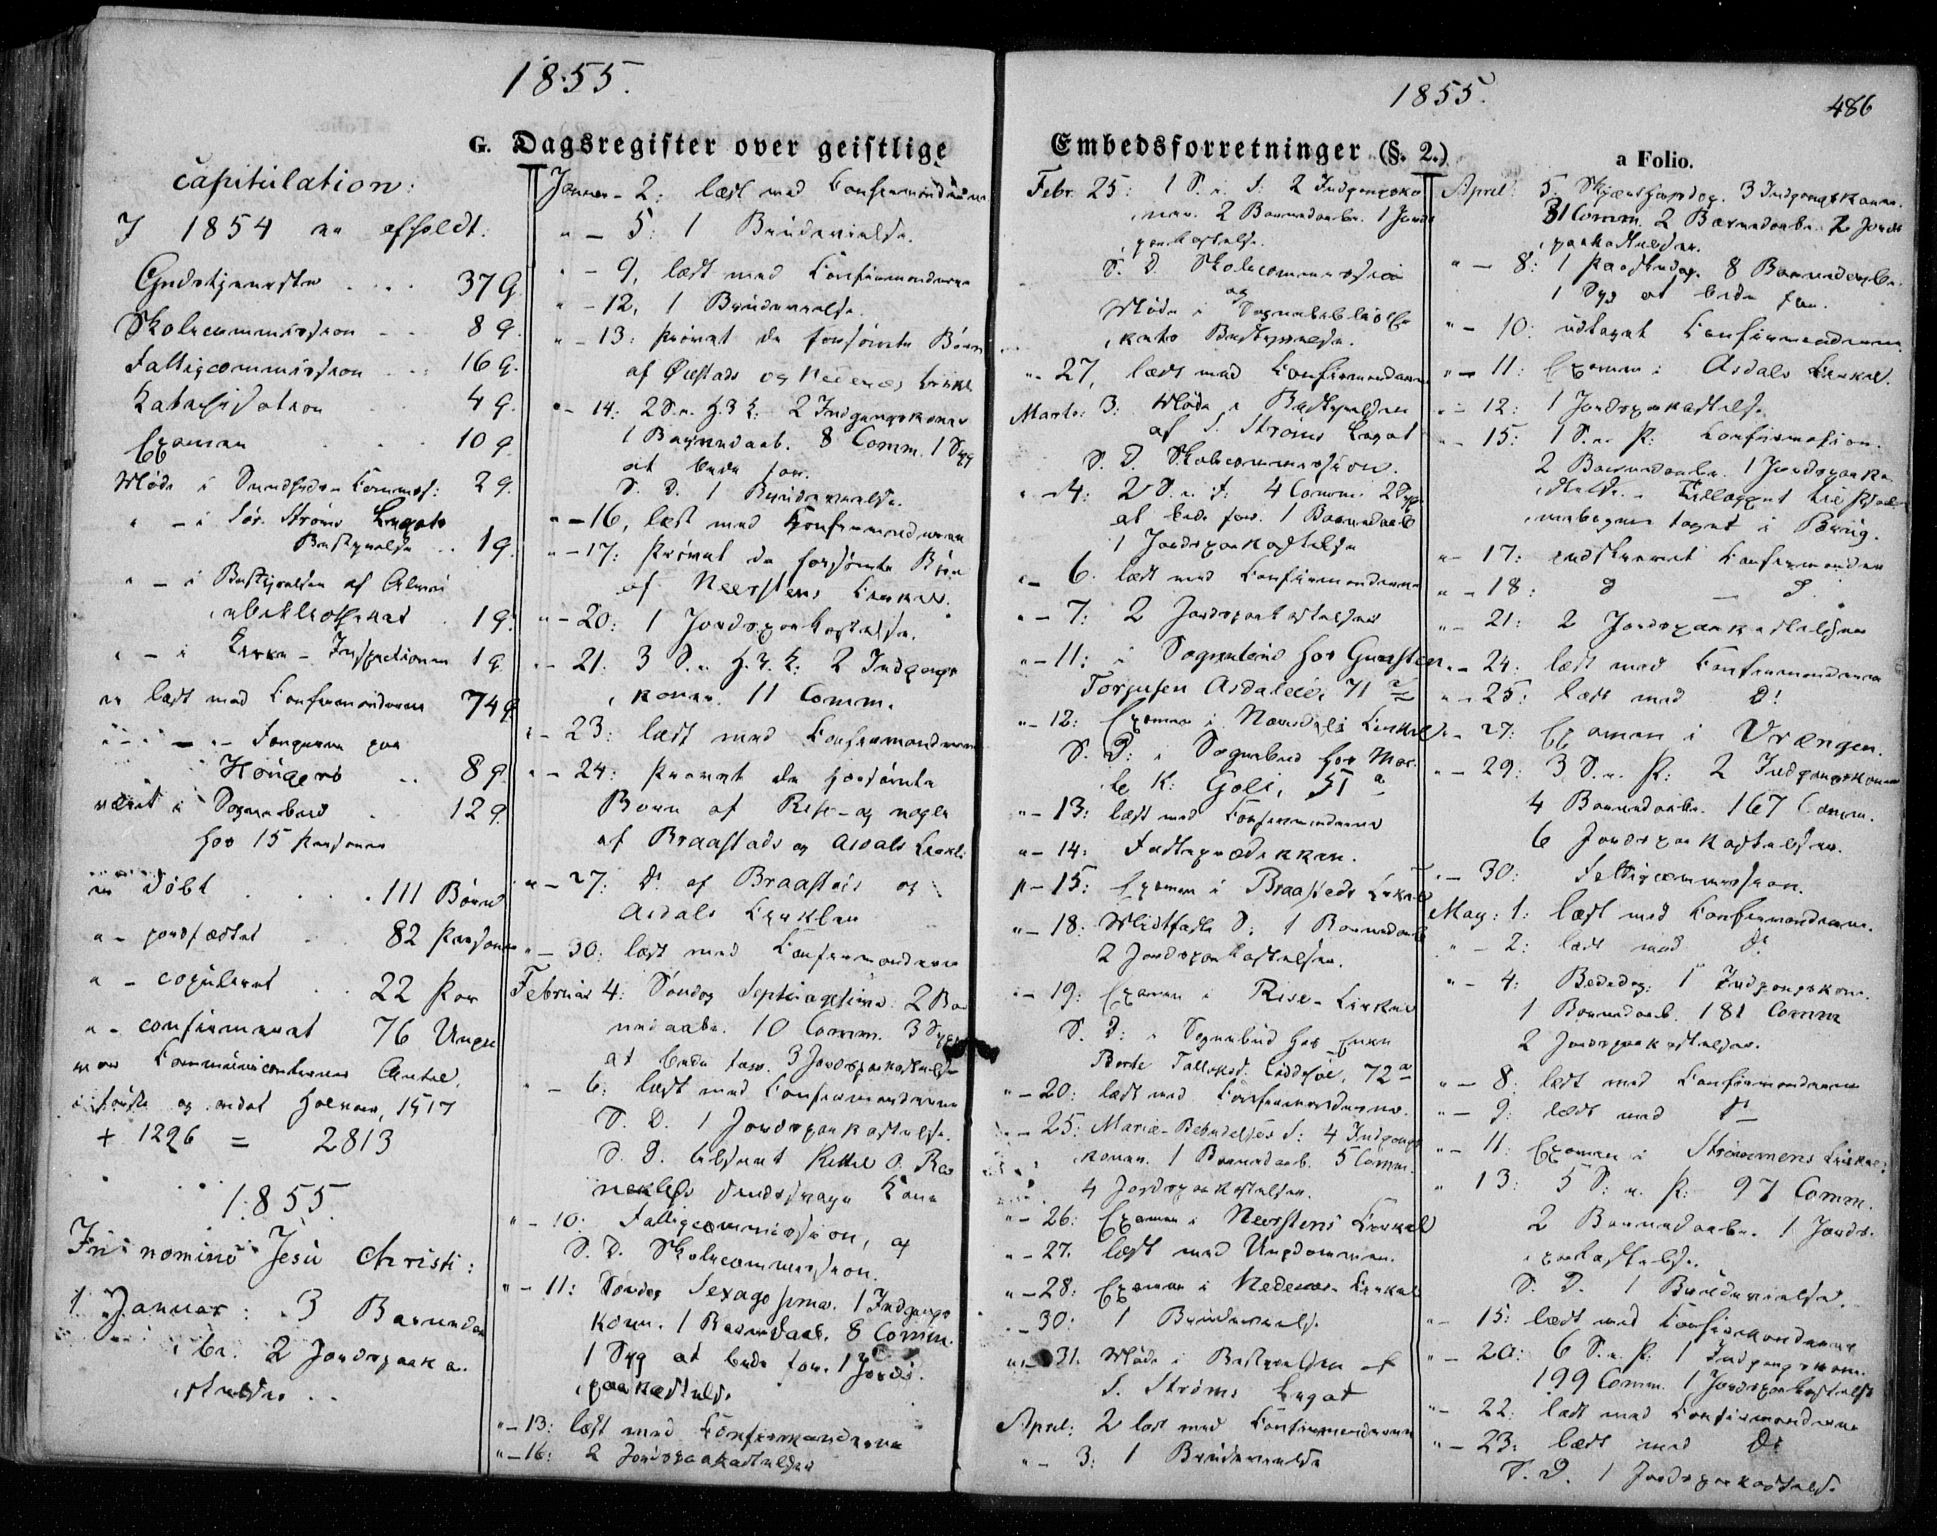 1855.
G. Dagsregister over geistlige
capitulation:
I 1854 er afholdt.
Gudstjeneste .... 37 G.
Skolecommission .. 8 g.
Fattigcommission .. 16 g.
Katechisation 4 g.
Examen ... 10 g.
Møde i Sundheds-Commis: 2 g.
" - i Sør. Strøms Legats
Bestyrelse .. 1 g.
" - i Bestyrelsen af Almu-
ebibliotheket . 1 g.
" - i Inspectionen 1 g.
er læst med Confirmanderne 74 g.
Fangerne paa
.. 8 g.
været i Sognebud . 12 g.
hos 15 Personer
er døbt ... 111 Børn
" - jordfæstet .. 82 Personer
" - copuleret .. 22 Par
" - confirmeret 76 Unge
var Communicanternes Antal,
i første og andet Halvaar, 1517
+ 1296 = 2813
1855.
In nomine Jesu Christi:
1 Januar: 3 Barneda-
be. 2 Jordspaaka-
stelser ..
Januar - 2: læst med Confirmanderne
" - 5: 1 Brudevielse.
" - 9, læst med Confirmanderne
" - 12, 1 Brudevielse.
" - 13: Prøvet de forsømte Børn
af Øiestads og Nedenæs
" - 14: 2 S. e. H. 3 K: 2 Indgangskoner
1 Barnedaab. 8 Comm. 1 Syg
at bede for.
S. D. 1 Brudevielse.
" - 16, læst med Confirmanderne
" - 17: Prøvet de forsømte Børn
af Neerstens
" - 20: 1 Jordspaakastelse.
" - 21. 3 S. e. H. 3. K. 2 Indgangs-
koner. 11 Comm.
" - 23: læst med Confirmanderne
" - 24: Prøvet de forsømte
Børn af Rise- og nogle
af Braastads og Asdals
" - 27: D. af Braastads og
Asdals
" - 30: læst med Confirmanderne
Februar 4: Søndag Septuagesima: 2 Bar-
nedaabe. 10 Comm. 3 Syge
at bede for. 3 Jordspaakastelse
" - 6: læst med Confirmanderne
S. D. 1 Jordspaakastelse.
S. D. Kittel O.
Kone
" - 10: Fattigcommission, og
S. D. Skolecommission.
" - 11: Søndag Sexagesima. 1 Indgangs-
kone. 1 Barnedaab. 8 Comm.
1 Syg at bede for. 1 Jords-
paakastelse
" - 13: læst med Confirmanderne
" - 16: 2 Jordspaakastelser
1855.
486
Embedsforretninger (§. 2.)
a Folio.
Febr. 25: 1 S. i F: 2 Indgangsko-
ner. 2 Barnedaabe. 1 Jords-
paakastelse.
S. D. Skolecommission
og
Møde i Sognebiblio-
Bestyrelse.
" - 27, læst med Confirmanderne
Marts: 3: Møde i Bestyrelsen
af S. Strøms Legat
S. D. Skolecommission.
" - 4: 2 S. i F: 4 Comm. 2 Syge
at bede for. 1 Barnedaab
1 Jordspaakastelse
" - 6. læst med Confirmanderne
" - 7: 2 Jordspaakastelser
" - 11: i Sognebud hos
Torjusen 71 a
" - 12: Examen i
S. D: i Sognebud hos
K: 51 a
" - 13: læst med Confirmanderne
" - 14: Fasteprædikken.
" - 15: Examen i Braastads
" - 18: Midtfaste S: 1 Barnedaab
2 Jordspaakastelser.
" - 19: Examen i Rise-
S. D: i Sognebud hos Enke
72 a
" - 20: læst med Confirmanderne.
" - 25: Mariæ-Bebudelses S: 4 Indgangs-
koner. 1 Barnedaab. 5 Comm.
4 Jordspaakastelser.
" - 26: Examen i Neerstens
" - 27. læst med Ungdommen.
" - 28: Examen i Nedenæs-
" - 30: 1 Brudevielse
" - 31. Møde i Bestyrelsen af
S. Strøms Legat
April: 2 læst med Confirmanderne
" - 3: 1 Brudevielse
April: 5. Skjærthorsdag. 3 Indgangskoner.
31 Comm. 2 Barnedaabe. 2 Jords-
paakastelser.
" - 8: 1 Paaskedag. 8 Barnedaabe.
1 Syg at bede for.
" - 10: udtaget Confirmanderne
" - 11: Examen i Asdals
" - 12: 1 Jordspaakastelse
" - 15: 1 S. e. P: Confirmation.
2 Barnedaabe. 1 Jordspaaka-
stelse. - Tillægget til Psal-
mebogen taget i Brug.
" - 17: indskrevet Confirmander
" - 18: d — d.
" - 21: 2 Jordspaakastelser
" - 24. læst med Confirmanderne
" - 25: læst med D:
" - 27: Examen i Vrængen.
" - 29: 3 S. e. P: 2 Indgangskoner
4 Barnedaabe. 167 Comm.
6 Jordspaakastelser.
" - 30: Fattigcommission.
May: 1: læst med Confirmanderne.
" - 2: læst med D:
" - 4: Bededag: 1 Indgangskone.
1 Barnedaab. 181 Comm
2 Jordspaakastelser.
" - 8: læst med Confirmanderne
" - 9: læst med D:
" - 11: Examen i Strømmens
" 13: 5 S: e. P: 97 Comm.
2 Barnedaabe. 1 Jords-
paakastelse.
S. D. 1 Brudevielse.
" - 15: læst med Confirmanderne
" - 20: 6 S. e. P: 1 Indgangskone.
199 Comm. 1 Jordspaakastelse
" - 22: læst med Confirmanderne
" - 23: læst med D:
S. D. 1 Jordspaakastelse